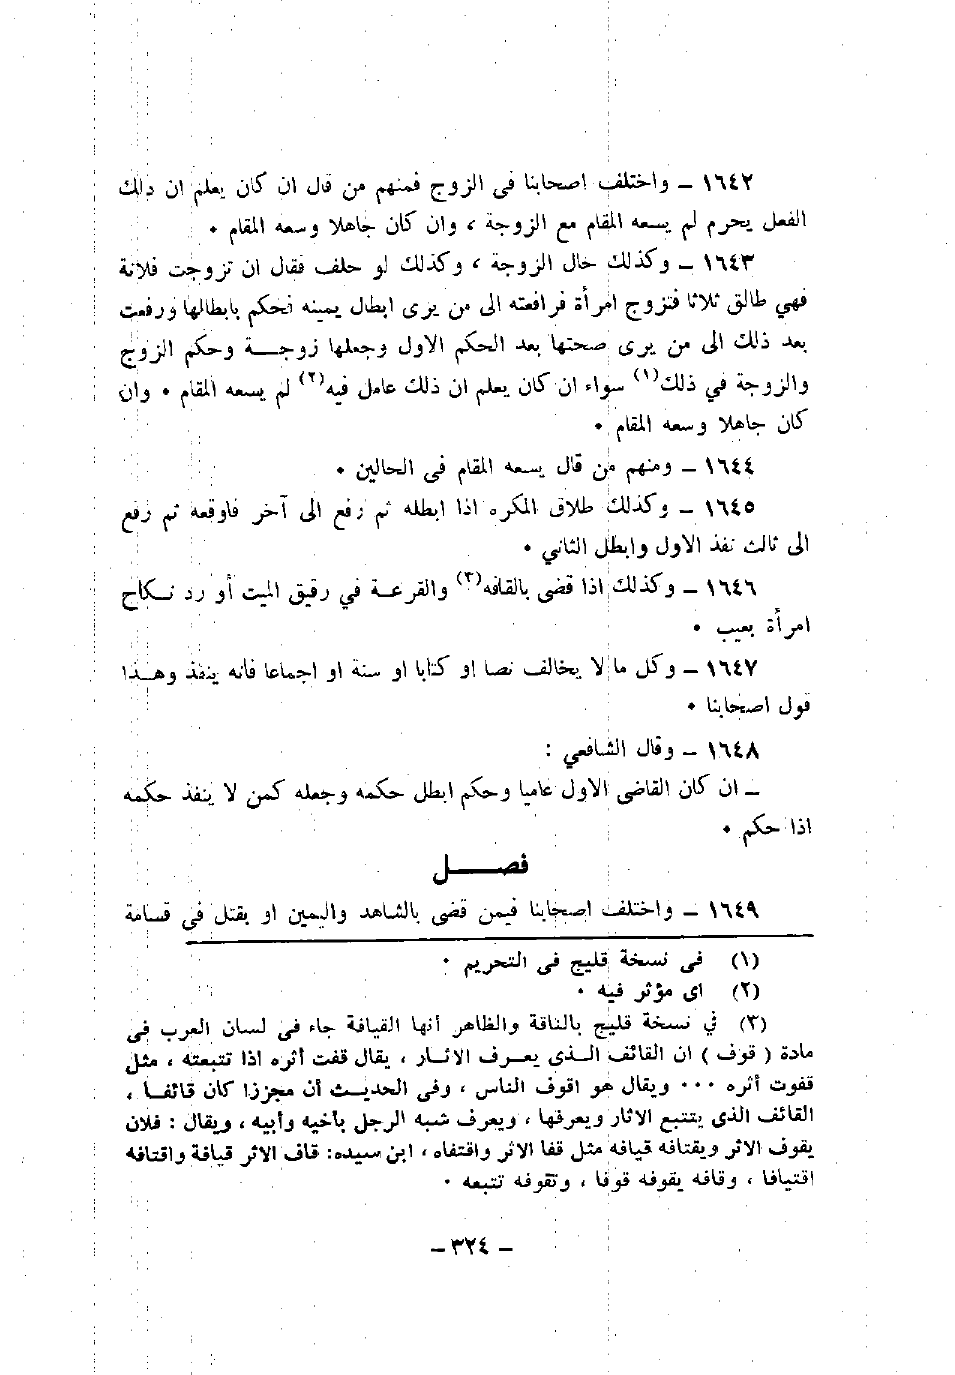 ١٦٤٢ ـ واختلف اصحابنا فى الزوج فمنهم من قال ان كان يعلم ان ذلك
الفعل يحرم لم يسعه المقام مع الزوجة ، وان كان جاهلا وسعه المقام ٠
١٦٤٣ ـ وكذلك حال الزوجة ، وكذلك لو حلف فقال ان تزوجت فلانة
فهي طالق ثلاثا فتزوج امرأة فرافعته الى من يرى ابطال يمينه فحكم بابطالها ورفعت
بعد ذلك الى من يرى صحتها بعد الحكم الاول وجعلها زوجــة وحكم الزوج
والزوجة في ذلك(١) سواء ان كان يعلم ان ذلك عامل فيه(٢) لم يسعه المقام ٠ وان
كان جاهلا وسعه المقام ٠
١٦٤٤ ـ ومنهم من قال يسعه المقام فى الحالين ٠
١٦٤٥ ـ وكذلك طلاق المكره اذا ابطله ثم رفع الى آخر فاوقعه ثم رفع
الى ثالث نفذ الاول وابطل الثاني ٠
١٦٤٦ ـ وكذلك اذا قضى بالقافه(٣) والقرعــة في رقيق الميت أو رد نــكاح
امرأة بعيب ٠
١٦٤٧ ـ وكل ما لا يخالف نصا او كتابا او سنة او اجماعا فانه ينفذ وهــذا
قول اصحابنا ٠
١٦٤٨ ـ وقال الشافعي :
ـ ان كان القاضى الاول عاميا وحكم ابطل حكمه وجعله كمن لا ينفذ حكمه
اذا حكم ٠
فصــــل
١٦٤٩ ـ واختلف اصحابنا فيمن قضى بالشاهد واليمين او بقتل في قسامة
(١) فى نسخة قليج فى التحريم ٠
(٢) اى مؤثر فيه ٠
(٣) في نسخة قليج بالناقة والظاهر أنها القيافة جاء فى لسان العرب فى
مادة ( قوف ) ان القائف الـذى يعــرف الاثــار ، يقال قفت أثره اذا تتبعته ، مثل
قفوت أثره ٠٠٠ ويقال هو اقوف الناس ، وفى الحديــث أن مجززا كان قائفــا ،
القائف الذى يتتبع الاثار ويعرفها ، ويعرف شبه الرجل بأخيه وأبيه ، ويقال : فلان
يقوف الاثر ويقتافه قيافه مثل قفا الاثر واقتفاه ، ابن سيده: قاف الاثر قيافة واقتافه
اقتيافا ، وقافه يقوفه قوفا ، وتقوفه تتبعه ٠
ـ ٣٢٤ ـ